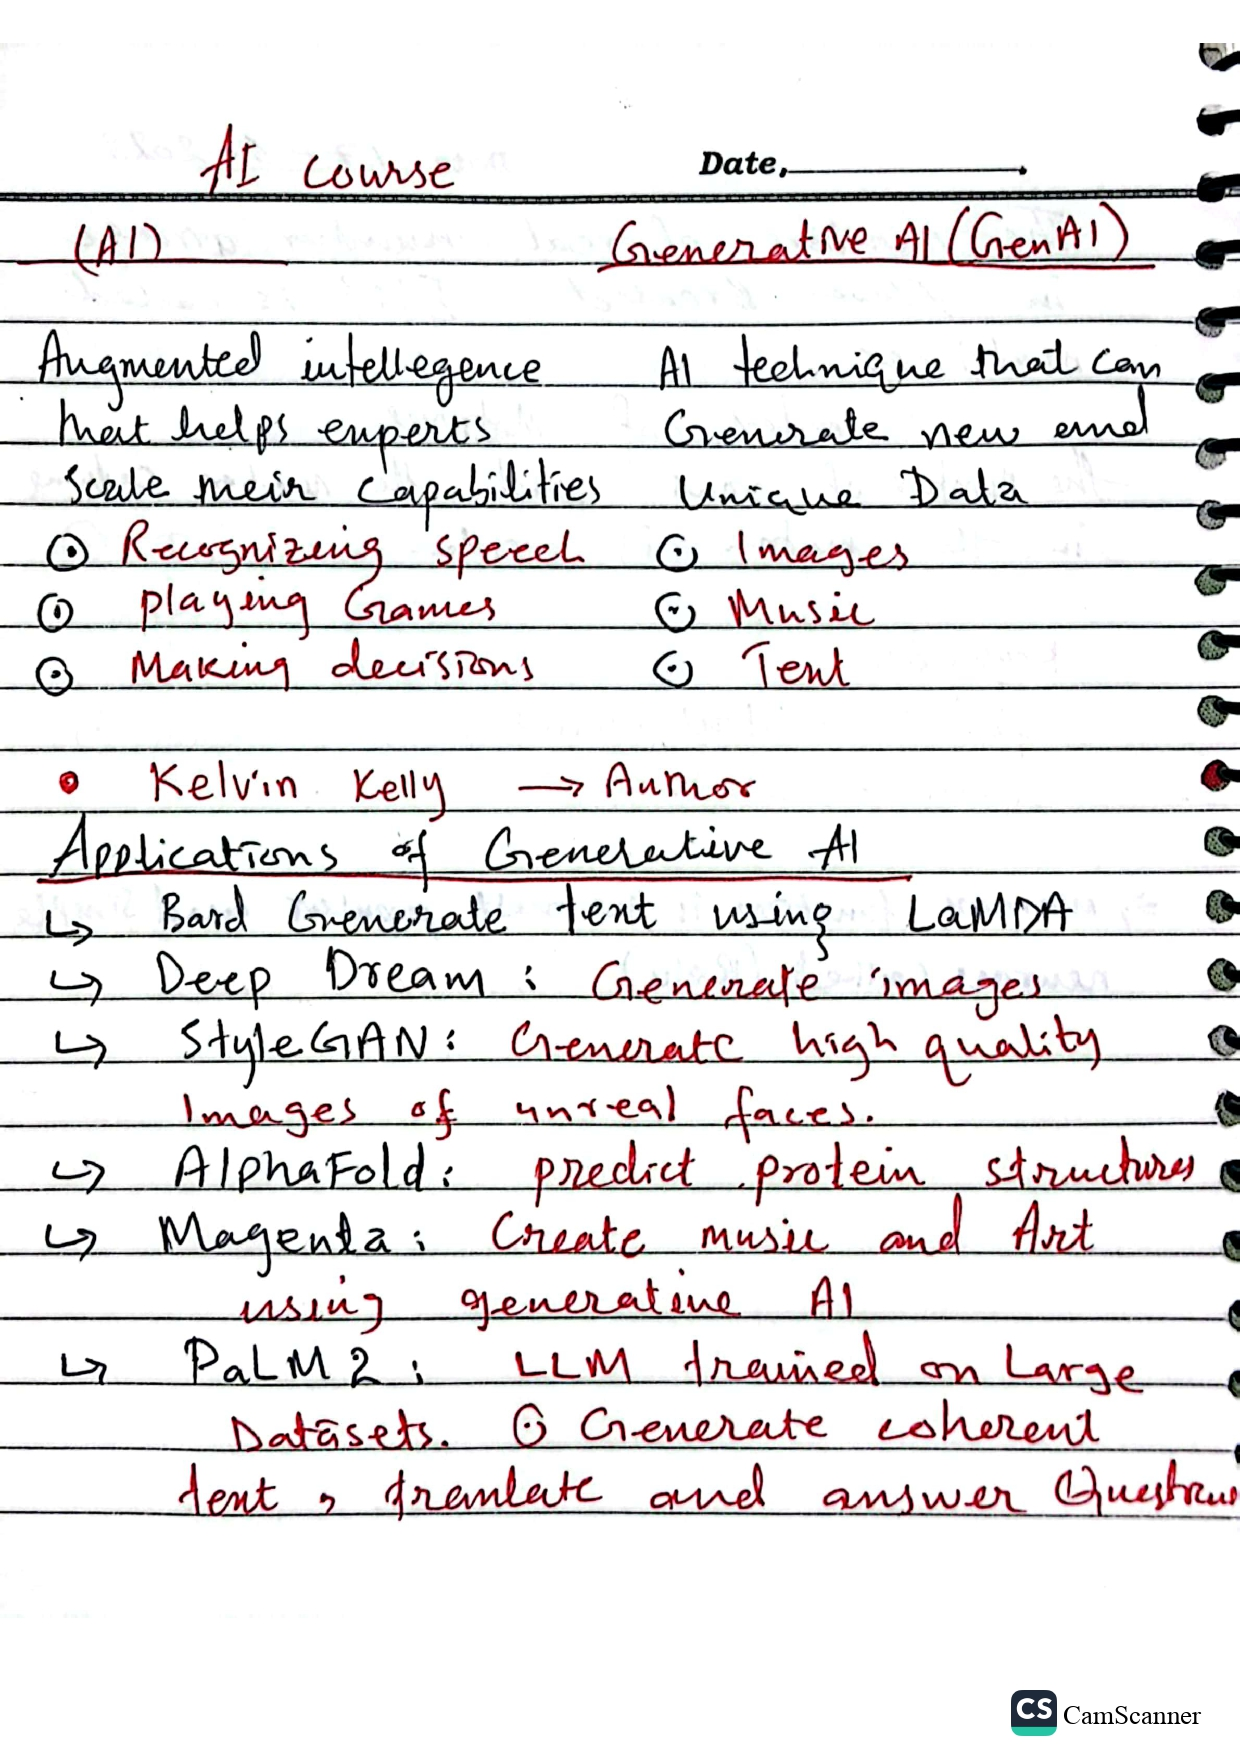 AI course
Date,
(AI)
Generative AI (GenAI)
Augmented intellegence
that helps experts
Scale their capabilities
Recognizing speech
playing Games
Making decisions
AI technique that can
Generate new and
Unique Data
Images
Music
Text
• Kelvin Kelly → Author
Applications of Generative AI
↳ Bard Generate text using LaMDA
↳ Deep Dream : Generate images
↳ StyleGAN : Generate high quality
Images of unreal faces.
↳ AlphaFold : predict protein structures
↳ Magenta : Create music and Art
using generative AI
↳ PaLM 2 : LLM trained on Large
Datasets. ⊙ Generate coherent
text, translate and answer Questions
CS CamScanner